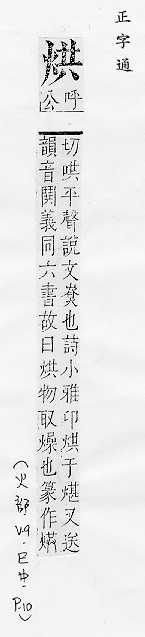 正字通
烘
呼
公
切哄平聲說文尞也詩小雅卬烘于煁又送
韻音鬨義同六書故曰烘物取燥也篆作
(火部 V.9.巳中.P.10)